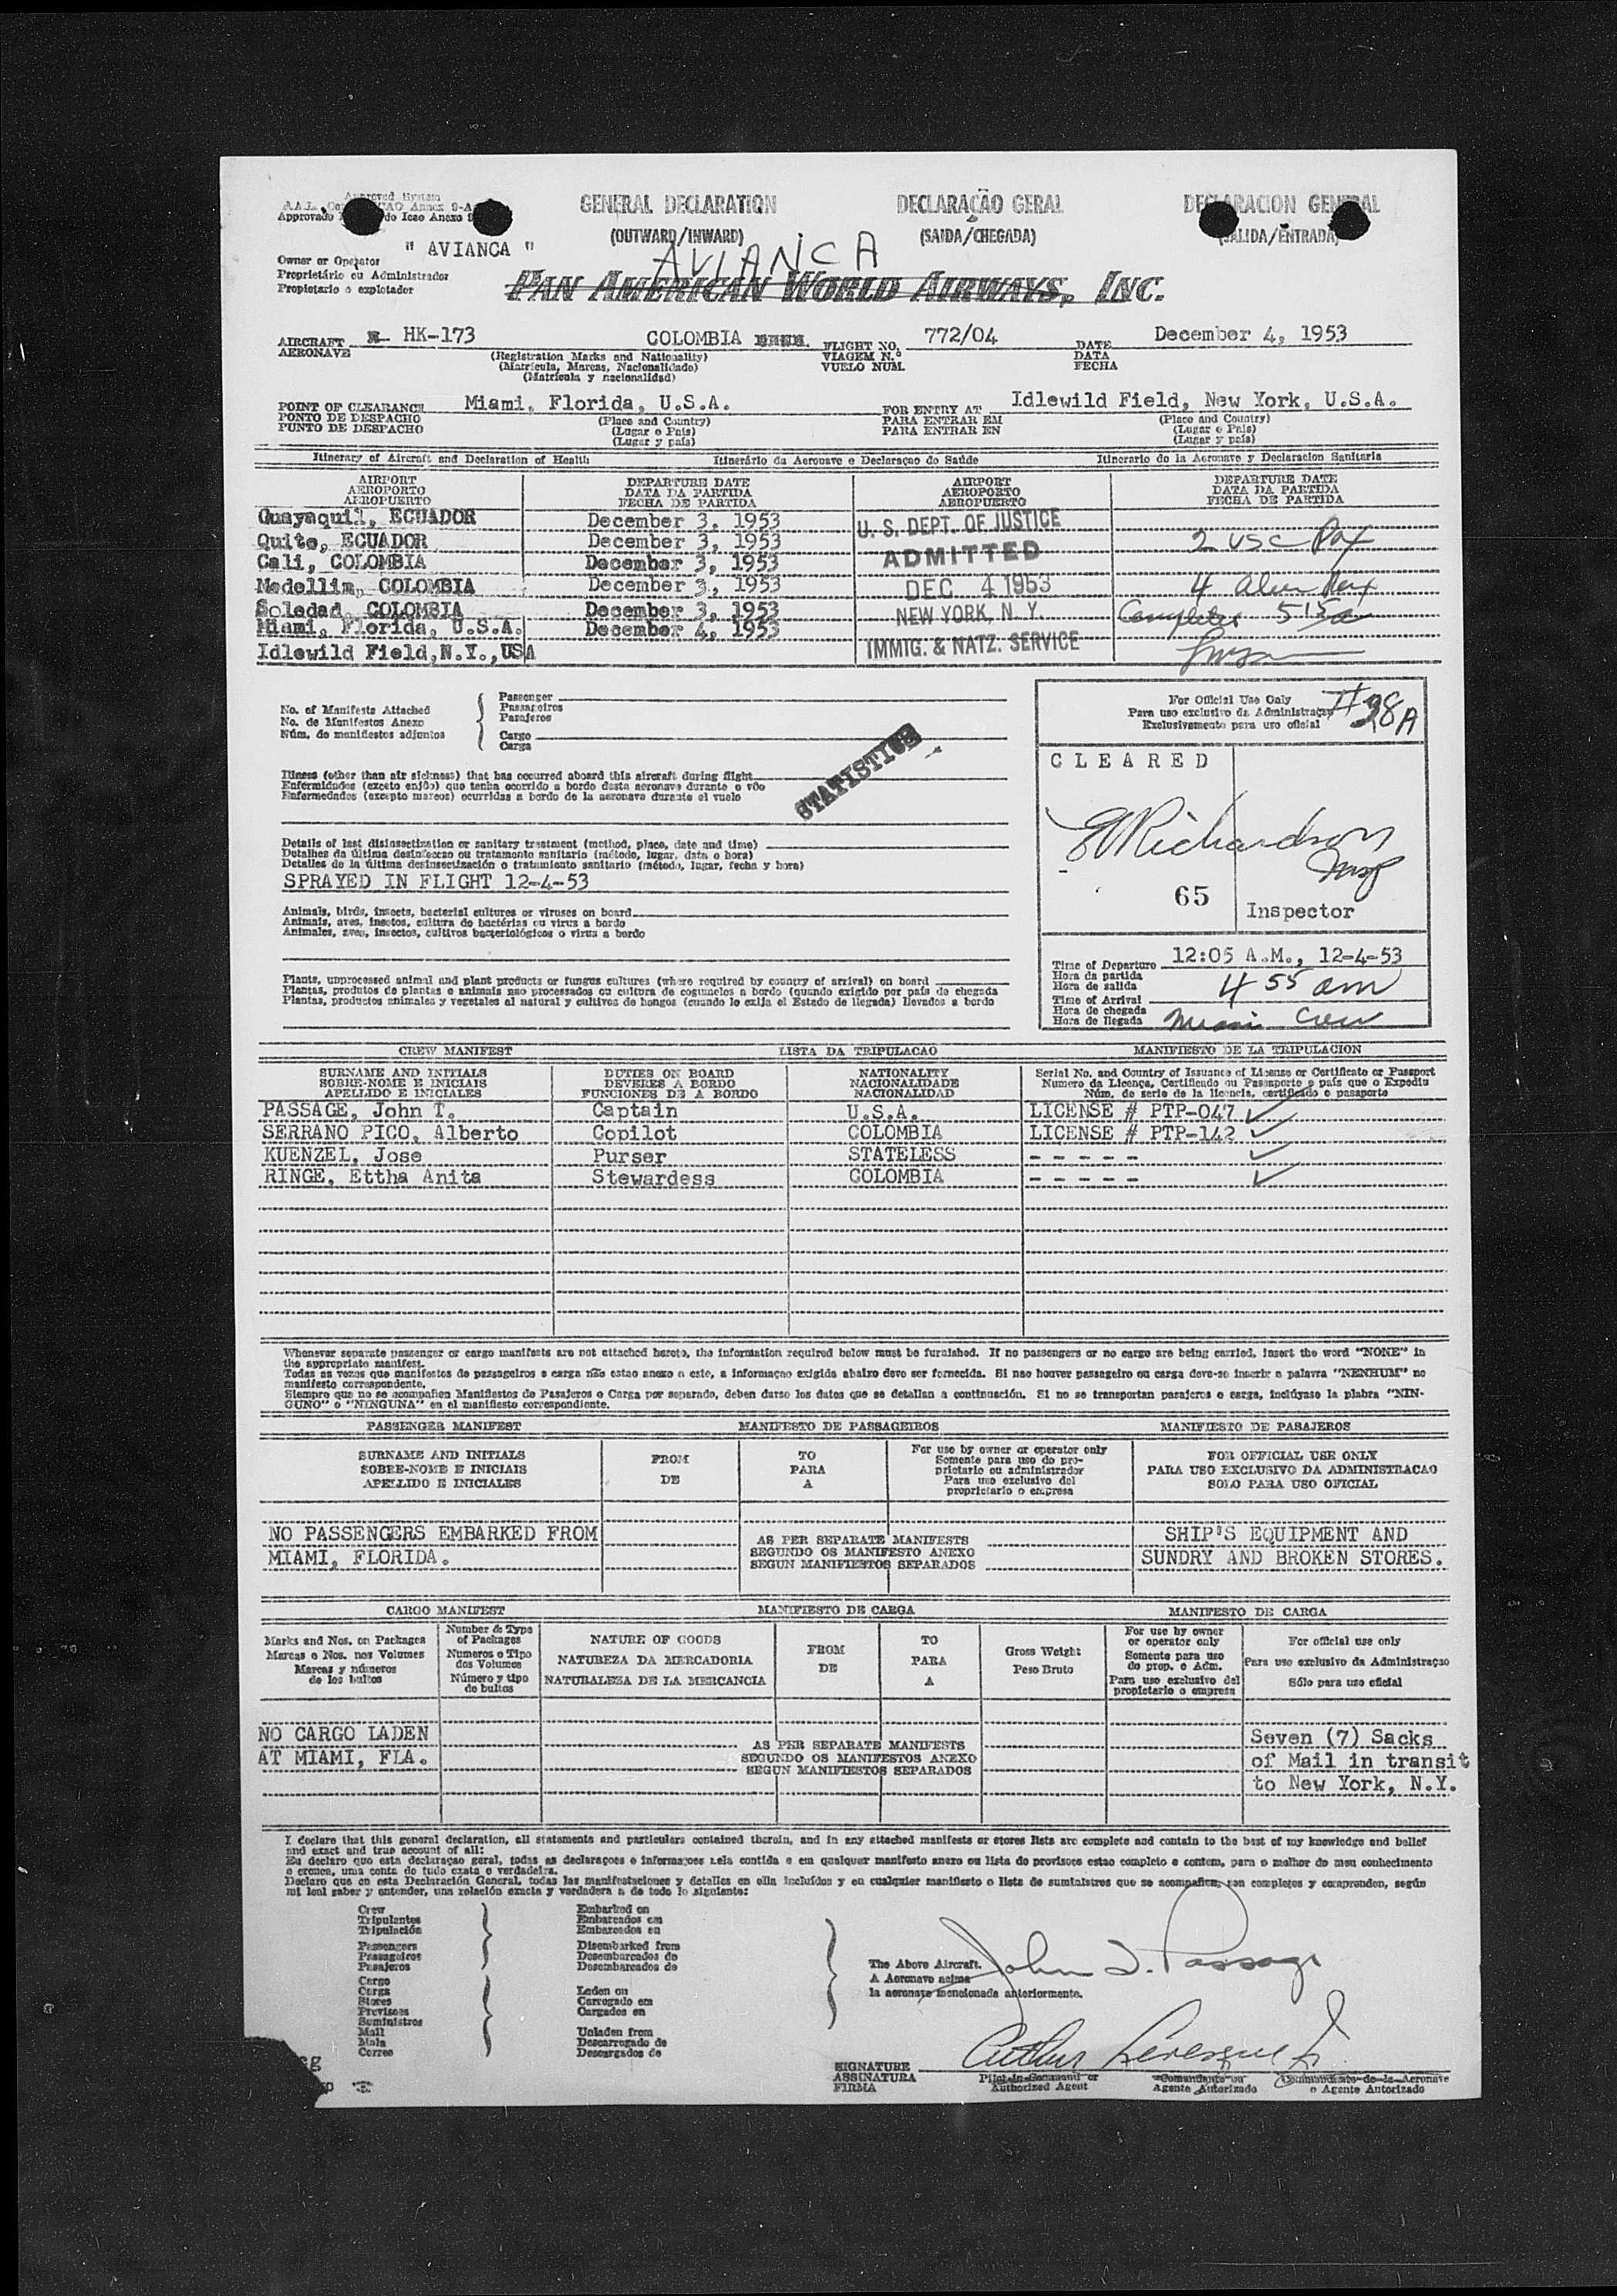 Approved System
Approvado do Icao Anexo
GENERAL DECLARATION
(OUTWARD/INWARD)
DECLARAÇÃO GERAL
(SAIDA/CHEGADA)
DECLARACION GENERAL
(SALIDA/ENTRADA)
" AVIANCA "
AVIANCA
Owner or Operator
Proprietário ou Administrador
Propietario o explotador
PAN AMERICAN WORLD AIRWAYS, INC.
AIRCRAFT HK-173 COLOMBIA FLIGHT NO. 772/04 DATE December 4, 1953
AERONAVE (Registration Marks and Nationality) VIAGEM N.º DATA
(Matrícula, Marcas, Nacionalidade) VUELO NUM. FECHA
(Matrícula y nacionalidad)
POINT OF CLEARANCE Miami, Florida, U.S.A. FOR ENTRY AT Idlewild Field, New York, U.S.A.
PONTO DE DESPACHO (Place and Country) PARA ENTRAR EM (Place and Country)
PUNTO DE DESPACHO (Lugar e País) PARA ENTRAR EN (Lugar e País)
(Lugar y país) (Lugar y país)
Itinerary of Aircraft and Declaration of Health Itinerário da Aeronave e Declaraçao do Saúde Itinerario de la Aeronave y Declaracion Sanitaria
AIRPORT DEPARTURE DATE AIRPORT DEPARTURE DATE
AEROPORTO DATA DA PARTIDA AEROPORTO DATA DA PARTIDA
AEROPUERTO FECHA DE PARTIDA AEROPUERTO FECHA DE PARTIDA
Guayaquil, ECUADOR December 3, 1953 U. S. DEPT. OF JUSTICE
Quito, ECUADOR December 3, 1953 2 USC Pax
Cali, COLOMBIA December 3, 1953 ADMITTED
Medellin, COLOMBIA December 3, 1953 DEC 4 1953 4 alien Pax
Soledad, COLOMBIA December 3, 1953 NEW YORK, N. Y. Completed 515a
Miami, Florida, U.S.A. December 4, 1953
Idlewild Field,N.Y.,USA IMMIG. & NATZ. SERVICE
No. of Manifests Attached
No. de Manifestos Anexo
Núm. de manifiestos adjuntos
Passenger
Passageiros
Pasajeros
Cargo
Carga
STATISTICS
Illness (other than air sickness) that has occurred aboard this aircraft during flight
Enfermidades (exceto enjôo) que tenha ocorrido a bordo desta aeronave durante o vôo
Enfermedades (excepto mareos) ocurridas a bordo de la aeronave durante el vuelo
Details of last disinsectization or sanitary treatment (method, place, date and time)
Detalhes da última desinfeccao ou tratamento sanitario (método, lugar, data o hora)
Detalles de la última desinsectización o tratamiento sanitario (método, lugar, fecha y hora)
SPRAYED IN FLIGHT 12-4-53
Animals, birds, insects, bacterial cultures or viruses on board
Animais, aves, insetos, cultura do bactérias ou virus a bordo
Animales, aves, insectos, cultivos bacteriológicos o virus a bordo
Plants, unprocessed animal and plant products or fungus cultures (where required by country of arrival) on board
Plantas, produtos de plantas e animais nao processados ou cultura de cogumelos a bordo (quando exigido por país de chegada
Plantas, productos animales y vegetales al natural y cultivos de hongos (cuando lo exija el Estado de llegada) llevados a bordo
For Official Use Only #38A
Para uso exclusivo da Administraçao
Exclusivamente para uso oficial
CLEARED
Richardson
Insp
65
Inspector
Time of Departure 12:05 A.M., 12-4-53
Hora da partida
Hora de salida
Time of Arrival 4 55 am
Hora de chegada
Hora de llegada Miami Crew
CREW MANIFEST LISTA DA TRIPULACAO MANIFIESTO DE LA TRIPULACION
SURNAME AND INITIALS DUTIES ON BOARD NATIONALITY Serial No. and Country of Issuance of License or Certificate or Passport
SOBRE-NOME E INICIAIS DEVERES A BORDO NACIONALIDADE Numero da Licença, Certificado ou Passaporte o país que o Expediu
APELLIDO E INICIALES FUNCIONES DE A BORDO NACIONALIDAD Núm. de serie de la licencia, certificado o pasaporte
PASSAGE, John T. Captain U.S.A. LICENSE # PTP-047 ✓
SERRANO PICO, Alberto Copilot COLOMBIA LICENSE # PTP-142 ✓
KUENZEL, Jose Purser STATELESS - - - - - ✓
RINGE, Ettha Anita Stewardess COLOMBIA - - - - - ✓
Whenever separate passenger or cargo manifests are not attached hereto, the information required below must be furnished. If no passengers or no cargo are being carried, insert the word "NONE" in
the appropriate manifest.
Todas as vezes que manifestos de passageiros e carga não estao anexo a este, a informaçao exigida abaixo deve ser fornecida. Si nao houver passageiro ou carga deve-se inserir a palavra "NENHUM" no
manifesto correspondente.
Siempre que no se acompañen Manifiestos de Pasajeros o Carga por separado, deben darse los datos que se detallan a continuación. Si no se transportan pasajeros o carga, inclúyase la plabra "NIN-
GUNO" o "NINGUNA" en el manifiesto correspondiente.
PASSENGER MANIFEST MANIFESTO DE PASSAGEIROS MANIFIESTO DE PASAJEROS
SURNAME AND INITIALS FROM TO For use by owner or operator only FOR OFFICIAL USE ONLY
SOBRE-NOME E INICIAIS DE PARA Somente para uso do pro- PARA USO EXCLUSIVO DA ADMINISTRACAO
APELLIDO E INICIALES A prietario ou administrador SOLO PARA USO OFICIAL
Para uso exclusivo del
proprietario o empresa
NO PASSENGERS EMBARKED FROM AS PER SEPARATE MANIFESTS SHIP'S EQUIPMENT AND
MIAMI, FLORIDA. SEGUNDO OS MANIFESTO ANEXO SUNDRY AND BROKEN STORES.
SEGUN MANIFIESTOS SEPARADOS
CARGO MANIFEST MANIFIESTO DE CARGA MANIFESTO DE CARGA
Marks and Nos. on Packages Number & Type of Packages NATURE OF GOODS FROM TO Gross Weight For use by owner or operator only For official use only
Marcas e Nos. nos Volumes Numeros o Tipo dos Volumes NATUREZA DA MERCADORIA DE PARA Peso Bruto Somente para uso do prop. e Adm. Para uso exclusivo da Administraçao
Marcas y números de los bultos Número y tipo de bultos NATURALEZA DE LA MERCANCIA A Para uso exclusivo del propietario o empresa Sólo para uso oficial
NO CARGO LADEN AS PER SEPARATE MANIFESTS Seven (7) Sacks
AT MIAMI, FLA. SEGUNDO OS MANIFESTOS ANEXO of Mail in transit
SEGUN MANIFIESTOS SEPARADOS to New York, N.Y.
I declare that this general declaration, all statements and particulars contained therein, and in any attached manifests or stores lists are complete and contain to the best of my knowledge and belief
and exact and true account of all:
Eu declaro que esta declaraçao geral, todas as declaraçoes e informaçoes nela contida e em qualquer manifesto anexo ou lista de provisoes estao completo e contem, para o melhor do meu conhecimento
e crença, uma conta de tudo exata e verdadeira.
Declaro que en esta Declaración General, todas las manifestaciones y detalles en ella incluídos y en cualquier manifiesto o lista de suministros que se acompañen, son completos y comprenden, según
mi leal saber y entender, una relación exacta y verdadera a de todo lo siguiente:
Crew Embarked on
Tripulantes Embarcados em
Tripulación Embarcados en
Passengers Disembarked from
Passageiros Desembarcados do
Pasajeros Desembarcados de
Cargo
Carga Laden on
Stores Carregado em
Previsoes Cargados en
Suministros
Mail Unladen from
Mala Descarregado de
Correo Descargados de
The Above Aircraft.
A Aeronave acima
la aeronave mencionada anteriormente.
John T. Passage
SIGNATURE
ASSINATURA
FIRMA
Pilot-in-Command or
Authorized Agent
Comandante ou
Agente Autorizado
Comandante de la Aeronave
o Agente Autorizado